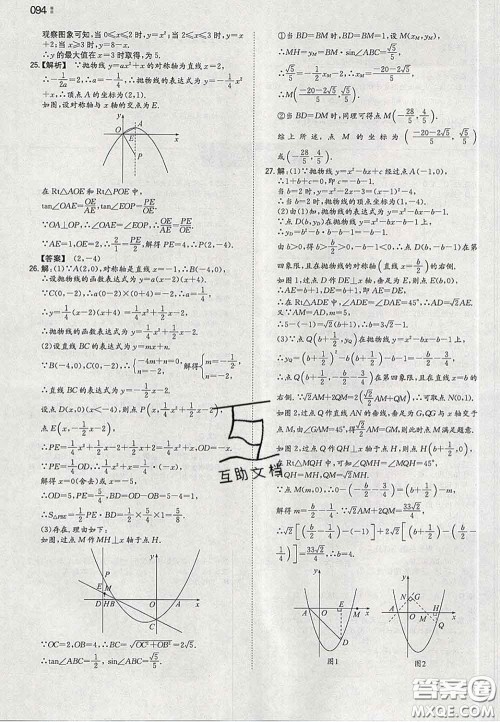 094
观察图象可知,当0≤x≤2时,y=x²;当2<x≤3时,y=x+2;当x≥3时,y=8-x.
∴y的最大值在x=3时取得,为5.
25.【解析】∵抛物线y=ax²+x的对称轴为直线x=2,
∴-1/2a=2,∴a=-1/4,∴抛物线的表达式为y=-1/4x²
+x,∴顶点A的坐标为(2,1).
如图,设对称轴与x轴的交点为E.
在Rt△AOE和Rt△POE中,
tan∠OAE=OE/AE,tan∠EOP=PE/OE.
∵OA⊥OP,∴∠OAE=∠EOP,∴OE/AE=PE/OE.
∵AE=1,OE=2,∴2/1=PE/2,解得PE=4,∴P(2,-4).
【答案】(2,-4)
26.解:(1)∵A(2,0),对称轴是直线x=-1,∴B(-4,0).
设抛物线的函数表达式为y=a(x-2)(x+4).
∵C(0,-2),∴a(0-2)(0+4)=-2,∴a=1/4,
∴y=1/4(x-2)(x+4)=1/4x²+1/2x-2,
∴抛物线的函数表达式为y=1/4x²+1/2x-2.
(2)设直线BC的表达式为y=mx+n.
∵B(-4,0),C(0,-2),∴{-4m+n=0, n=-2, 解得{m=-1/2, n=-2,
∴直线BC的表达式为y=-1/2x-2.
设点D(x,0)(x<-4),则点P(x,1/4x²+1/2x-2),
点E(x,-1/2x-2),
∴PE=1/4x²+x.∵PE=1/4x²+x=OD,OD=-x,
∴1/4x²+x=-x,
解得x=0(舍去)或x=-8,
∴OD=5,PE=5/4,BD=OD-OB=5-4=1,
(3)存在.理由如下:
如图,过点M作MH⊥x轴于点H.
∵OC=2,OB=4,∴BC=√(OC²+OB²)=2√5,
∴tan∠ABC=1/2,sin∠ABC=√5/5.
①当BD=BM时,
②当BD=DM时,同理可得点M(-28/5,4/5).
综上所述,点M的坐标为(-20-2√5/5,2√5/5)
或(-28/5,4/5).
27.解:(1)∵抛物线y=x²-bx+c经过点A(-1,0),
∴1+b+c=0,即c=-b-1.
当b=2时,y=x²-2x-3=(x-1)²-4,
∴抛物线的顶点坐标为(1,-4).
(2)由(1)知,抛物线的表达式为y=x²-bx-b-1.
∵点D(b,y_D)在抛物线y=x²-bx-b-1上,
∴y_D=b²-b·b-b-1=-b-1.
由b>0,得b>b/2>0,-b-1<0,∴点D(b,-b-1)在第
四象限,且在抛物线的对称轴x=b/2的右侧.
如图1,过点D作DE⊥x轴,垂足为E,则点E(b,0),
∴AE=b+1,DE=b+1,∴AE=DE,
∴在Rt△ADE中,∠ADE=∠DAE=45°,∴AD=√2AE.
又∵AM=AD,m=5,
∴5-(-1)=√2(b+1),∴b=3√2-1.
(3)∵点Q(b+1/2,y_Q)在抛物线y=x²-bx-b-1上,
∴y_Q=(b+1/2)²-b(b+1/2)-b-1=-b/2-3/4.
∴点Q(b+1/2,-b/2-3/4)在第四象限,且在直线x=b的
右侧.
∵√2AM+2QM=2(√2/2AM+QM),
如图2,过点Q作直线AM的垂线,垂足为G,QG与x轴于
点M,由∠GAM=45°,得√2/2AM=GM,则此时点M满足题意.
如图2,过点Q作QH⊥x轴于点H,则点H(b+1/2,0).
在Rt△MQH中,可知∠QMH=∠MQH=45°,
∴QH=MH,QM=√2MH.
∵点M(m,0),∴0-(-b/2-3/4)=(b+1/2)-m,
解得m=b/2-1/4.
∵√2AM+2QM=33√2/4,
∴√2[(b/2-1/4)-(-1)]+2√2[(b+1/2)-(b/2-1/4)]=33√2/4,∴b=4.
图1
图2
互助文档
答案圈
MXQE.COM